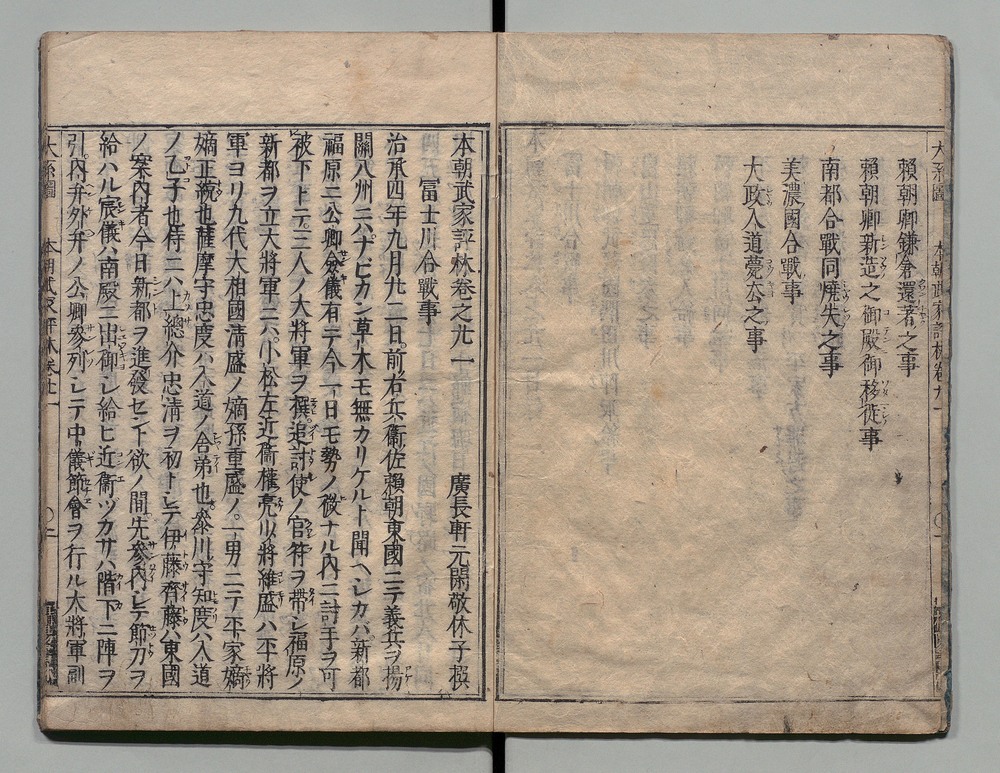 賴朝卿鎌倉還著之事
賴朝卿新造之御殿御移徙事
南都合戰同燒失之事
美濃國合戰事
大政入道薨去之事
本朝武家評林卷之廿一
廣長軒元閑敬休子撰
冨士川合戰事
治承四年九月廿二日。前右兵衞佐賴朝東國ニテ義兵ヲ揚
關八州ニハナビカン草木モ無カリケルト聞ヘシカバ新都
福原ニ公卿僉儀有テ今一日モ勢ノ微ナル内ニ討手ヲ可
被下トニ。三人ノ大將軍ヲ撰。追討使ノ官符ヲ帶シ福原ノ
新都ヲ立大將軍ニハ。小松左近衞權亮少將維盛ハ平將
軍ヨリ九代大相國淸盛ノ嫡孫重盛ノ。一男ニテ平家嫡
嫡正統也薩摩守忠度ハ入道ノ舎弟也參川守知度ハ入道
ノ乙子也侍ニハ上總介忠淸ヲ初トシテ伊藤齊藤ハ東國
ノ案内者今日新都ヲ進發セント欲ノ間。先參内シテ節刀ヲ
給ハル宸儀ハ南殿ニ出御シ給ヒ近衞ツカサハ階下ニ陣ヲ
引。内弁外弁ノ公卿參列シテ中儀節會ヲ行ル大將軍副
大系圖
本朝武家評林卷廿一
〇二